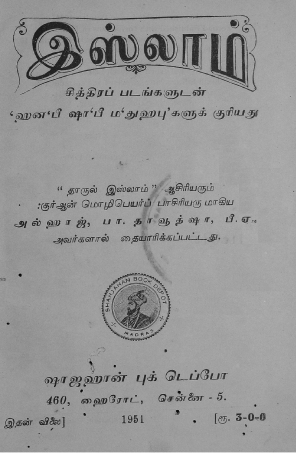 இஸ்லாம்
சித்திரப் படங்களுடன்
‘ஹன'பீ ஷா'பீ ம'துஹபு'களுக் குரியது
“ தாருல் இஸ்லாம் ” ஆசிரியரும்
குர்ஆன் மொழிபெயர்ப் பாசிரியரு மாகிய
அல்ஹாஜ், பா. தாவூத்ஷா, பீ.ஏ.,
அவர்களால் தையாரிக்கப்பட்டது.
SHAJAHAN BOOK DEPOT
MADRAS
ஷாஜஹான் புக் டெப்போ
460, ஹைரோட், சென்னை - 5.
இதன் விலை] 1951 [ரூ. 3-0-0